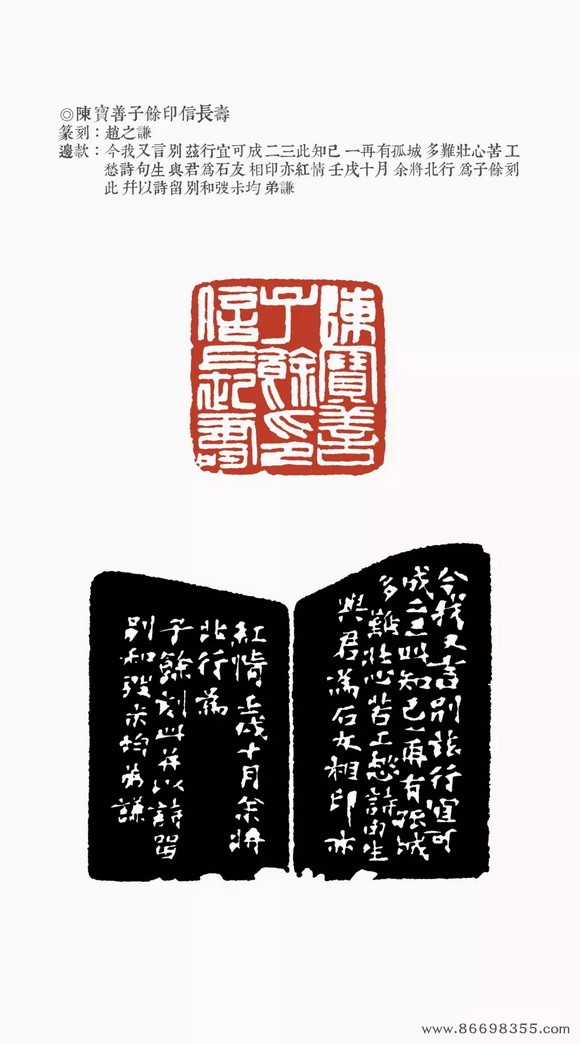 ◎陳寶善子餘印信長壽
篆刻：趙之謙
邊款：今我又言別 茲行宜可成 二三此知己 一再有孤城 多難壯心苦 工
愁詩句生 與君爲石友 相印亦紅情 壬戌十月 余將北行 爲子餘刻
此 幷以詩留別和弢未均 弟謙
陳寶善
子餘印
信長壽
今我又言別茲行宜可
成二三此知己一再有孤城
多難壯心苦工愁詩句生
與君爲石友相印亦
紅情 壬戌十月余將
北行爲
子餘刻此幷以詩留
別和弢未均弟謙
www.86698355.com